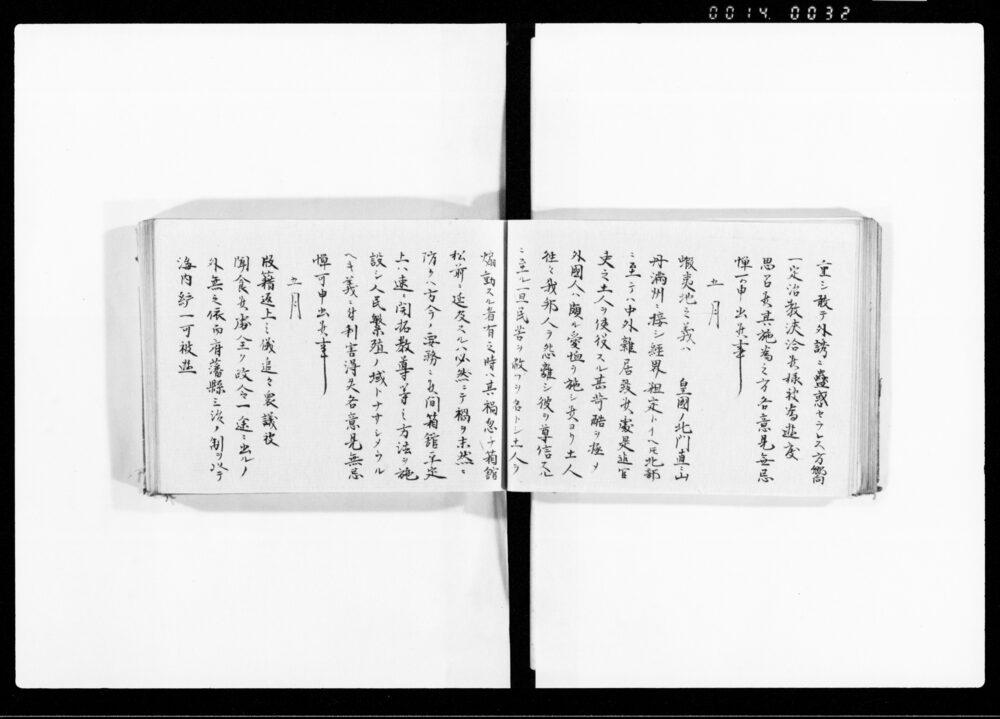 0014. 0032
重シ敢テ外誘ニ蠱惑セラレス方嚮
一定治教浹洽候様被為遊度
思召候其施為之方各意見無忌
憚可申出候事
五月
蝦夷地之義ハ 皇國ノ北門直ニ山
丹満州ニ接シ経界粗定トイヘ𪜈北部
ニ至テハ中外雑居致候處是迄官
吏之土人ヲ使役スル甚苛酷ヲ極メ
外國人ハ頗ル愛恤ヲ施シ候ヨリ土人
往々我邦人ヲ怨離シ彼ヲ尊信スル
ニ至ル一旦民苦ヲ救フヲ名トシ土人ヲ
煽動スル者有之時ハ其禍忽チ箱館
松前ニ延及スルハ必然ニテ禍ヲ未然ニ
防クハ方今ノ要務ニ候間箱館平定
上ハ速ニ開拓教導等之方法ヲ施
設シ人民繁殖ノ域トナサシメラル
ヘキ義ニ付利害得失各意見無忌
憚可申出候事
五月
版籍返上之儀追々衆議被
聞食候處全ク政令一途ニ出ルノ
外無之依而府藩縣三治ノ制ヲ以テ
海内統一可被遊